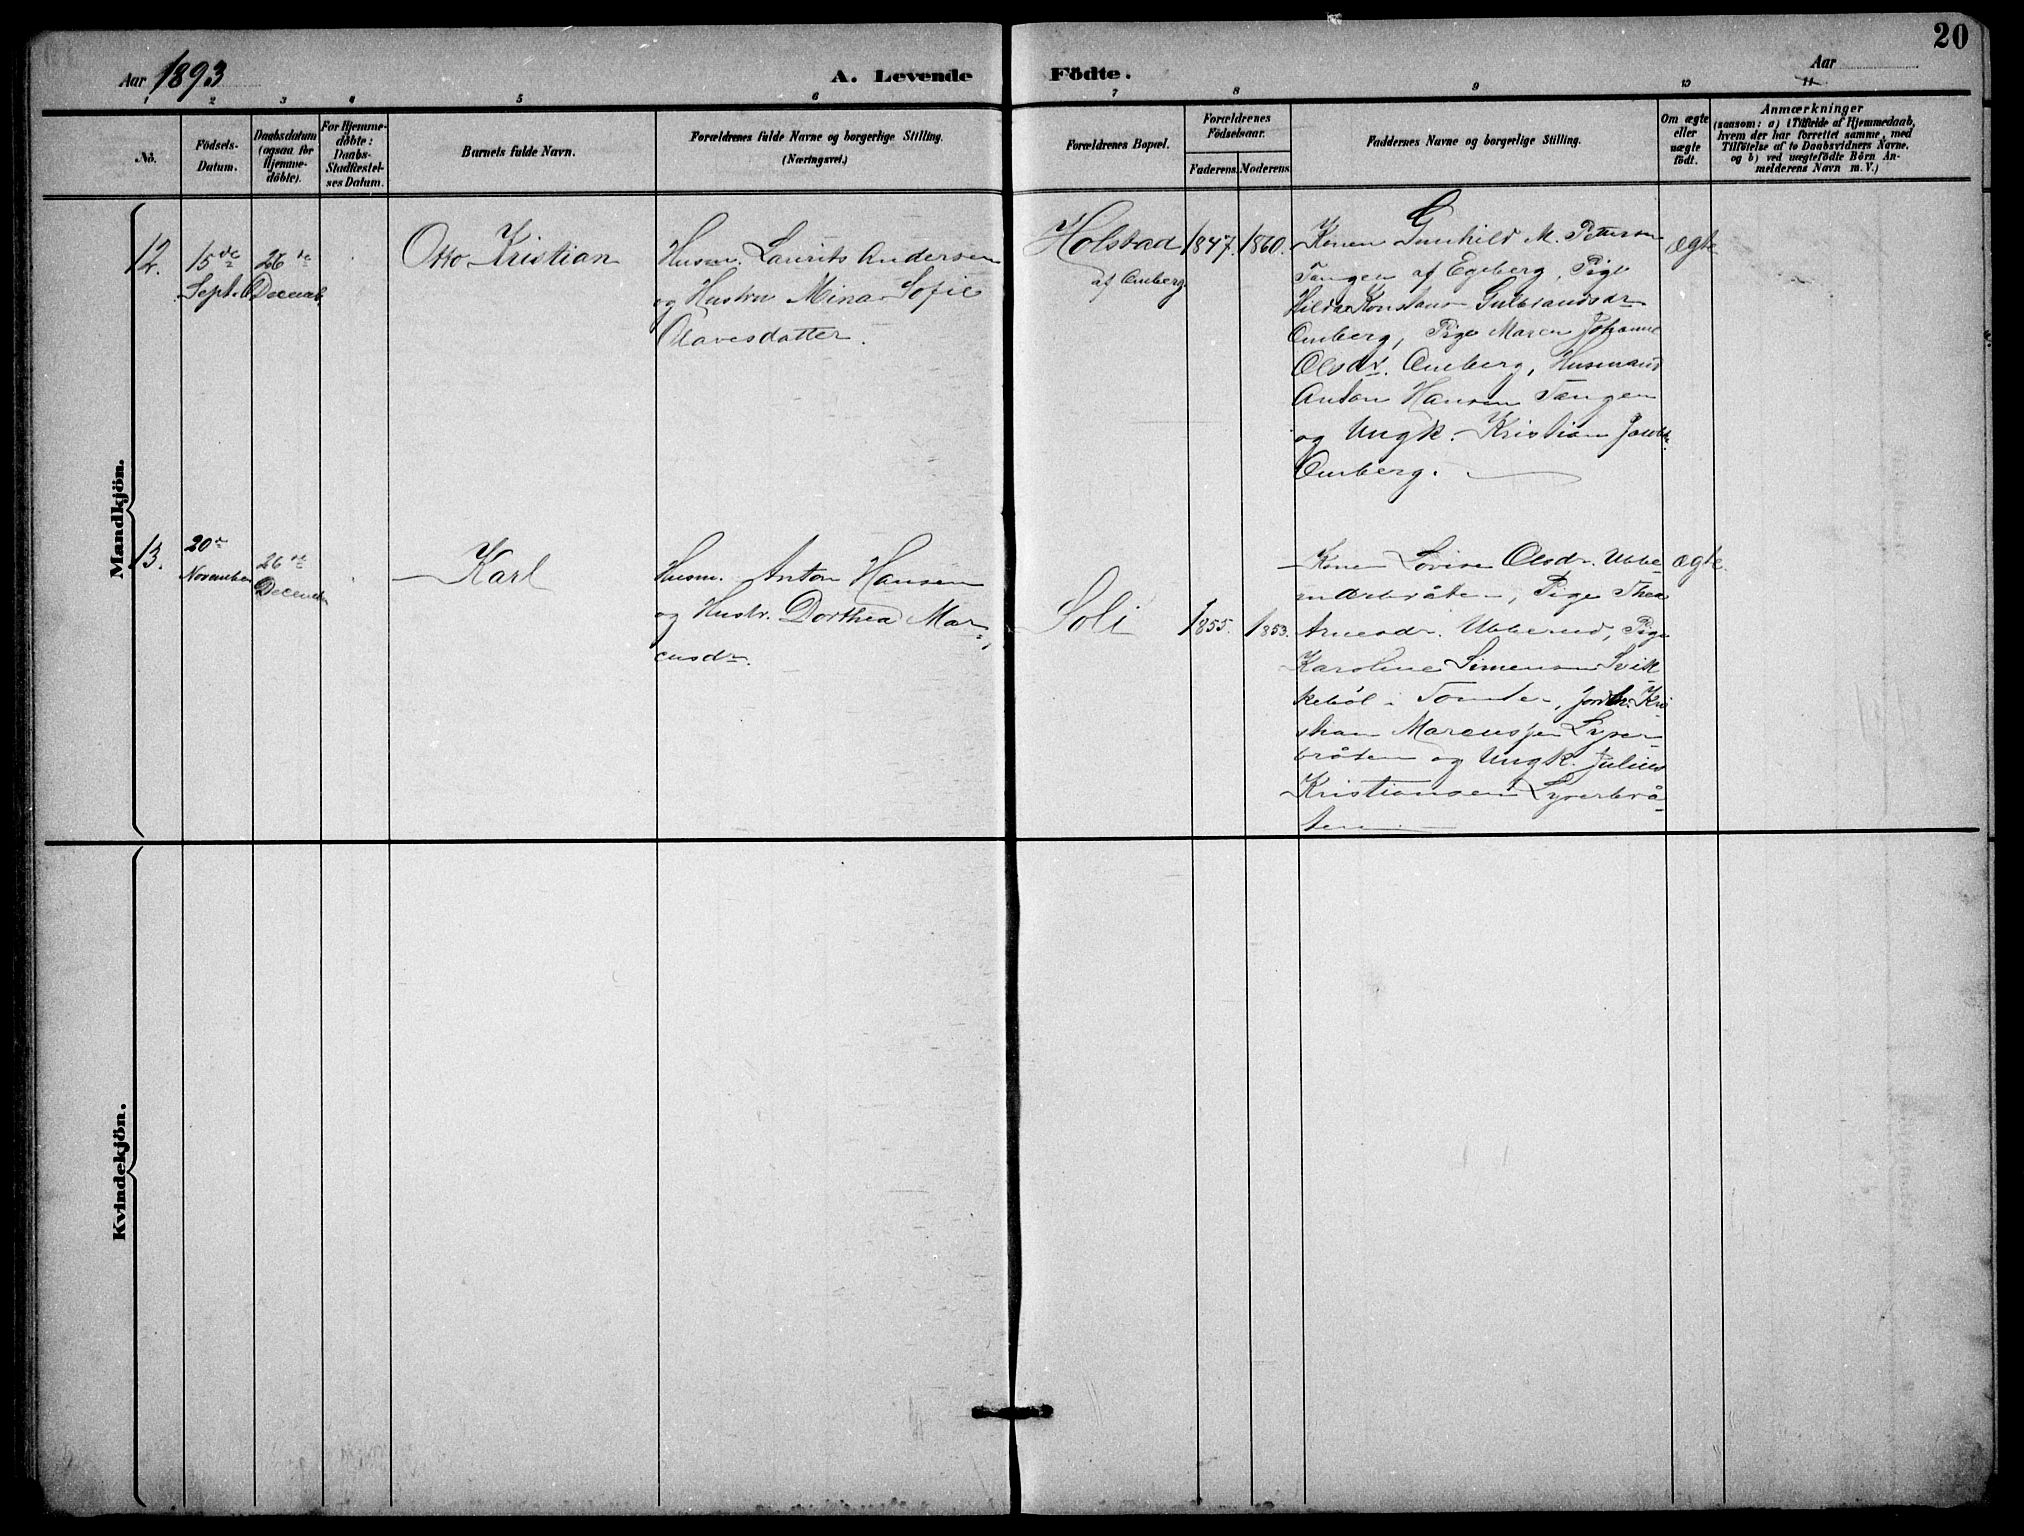 20
Aar 1893
A. Levende Födte.
Aar
1 2 3 4 5 6 7 8 9 10 11
No.
Födsels-
Datum.
Daabsdatum
(ogsaa for
Hjemme-
döbte).
For Hjemme-
döbte:
Daabs-
Stadfæstel-
ses Datum.
Barnets fulde Navn.
Forældrenes fulde Navne og borgerlige Stilling.
(Næringsvei.)
Forældrenes Bopæl.
Forældrenes
Födselsaar.
Faderens. Moderens.
Faddernes Navne og borgerlige Stilling.
Om ægte
eller
uægte
födt.
Anmærkninger
(saasom: a) i Tilfælde af Hjemmedaab,
hvem der har forrettet samme, med
Tilföielse af to Daabsvidners Navne,
og b) ved uægtefödte Börn An-
melderens Navn m. V.)
Mandkjön.
12.
15de
Sept.
26de
Decemb.
Otto Kristian
Husm. Laurits Andersen
og Hustru Mina Sofie
Olavesdatter.
Holstad
af Omberg
1847.
1860.
Konen Gunhild M. Peterson
Tangen af Egeberg, Pige
Hilda Konstanse Gulbrandsdr
Omberg, Pige Maren Johanne
Olsdr. Omberg, Husmand
Anton Hansen Tangen
og Ungk. Kristian
Omberg.
ægte
13.
20de
November
26de
December
Karl
Husm. Anton Hansen
og Hustr. Dorthea Mar-
cusdr.
Soli
1855.
1853.
Kone Lovise Olsdr. Ubbe-
, Pige Thea
Arnesdr. Ubberud, Pige
Karoline Simensen Svik-
kebøl i Tomter, Jordbr. Kri-
stian Marcussen Lyser-
bråten og Ungk. Julius
Kristiansen Lyserbrå-
ten
ægte
Kvindekjön.